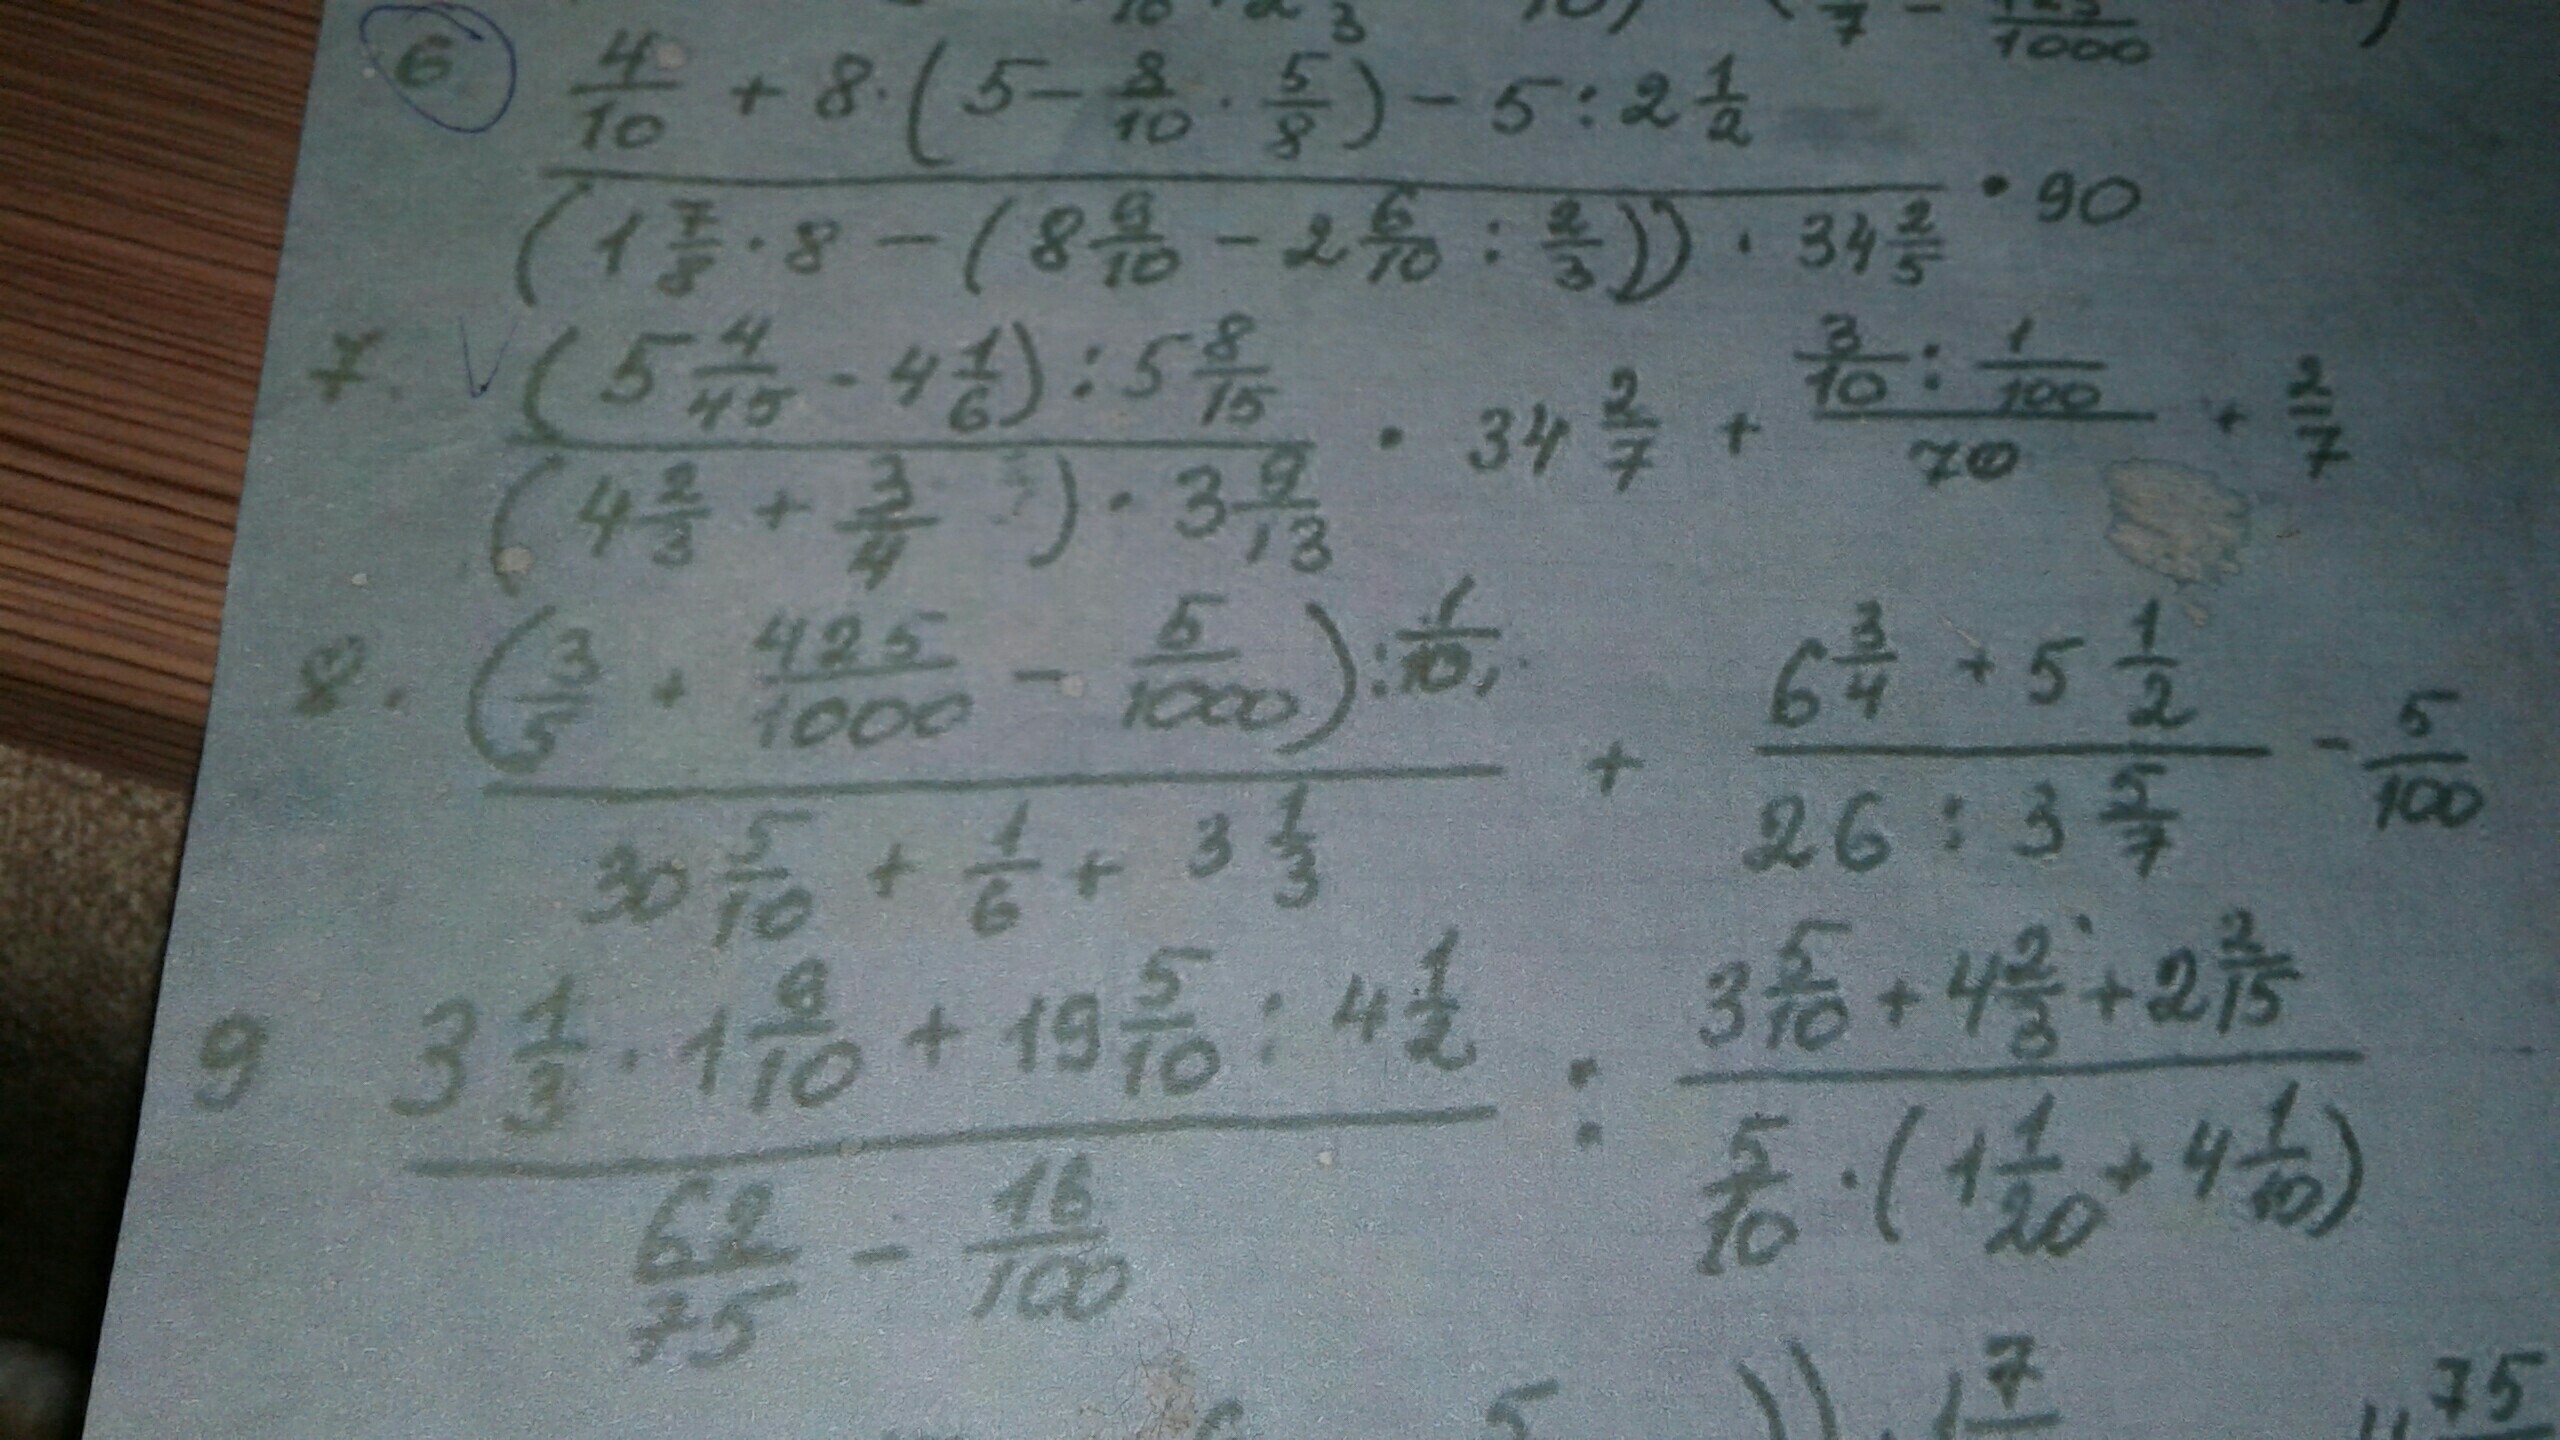 6. 4/10 + 8·(5 − 8/10 · 5/8) − 5 : 2 1/2
(1 7/8 · 8 − (8 9/10 − 2 6/10 : 2/3)) · 34 2/5 · 90
7. (5 4/45 - 4 1/6) : 5 8/15
(4 2/3 + 3/4) · 3 9/13 · 34 2/7 + 3/10 : 1/100 / 70 + 2/7
8. (3/5 + 425/1000 − 5/1000) : 1/10
30 5/10 + 1/6 + 3 1/3 + 6 3/4 + 5 1/2 / 26 : 3 5/7 - 5/100
9 3 1/3 · 1 9/10 + 19 5/10 : 4 1/2 : 3 5/10 + 4 2/3 + 2 2/15
62/75 − 16/100 5/10 · (1 1/20 + 4 1/10)